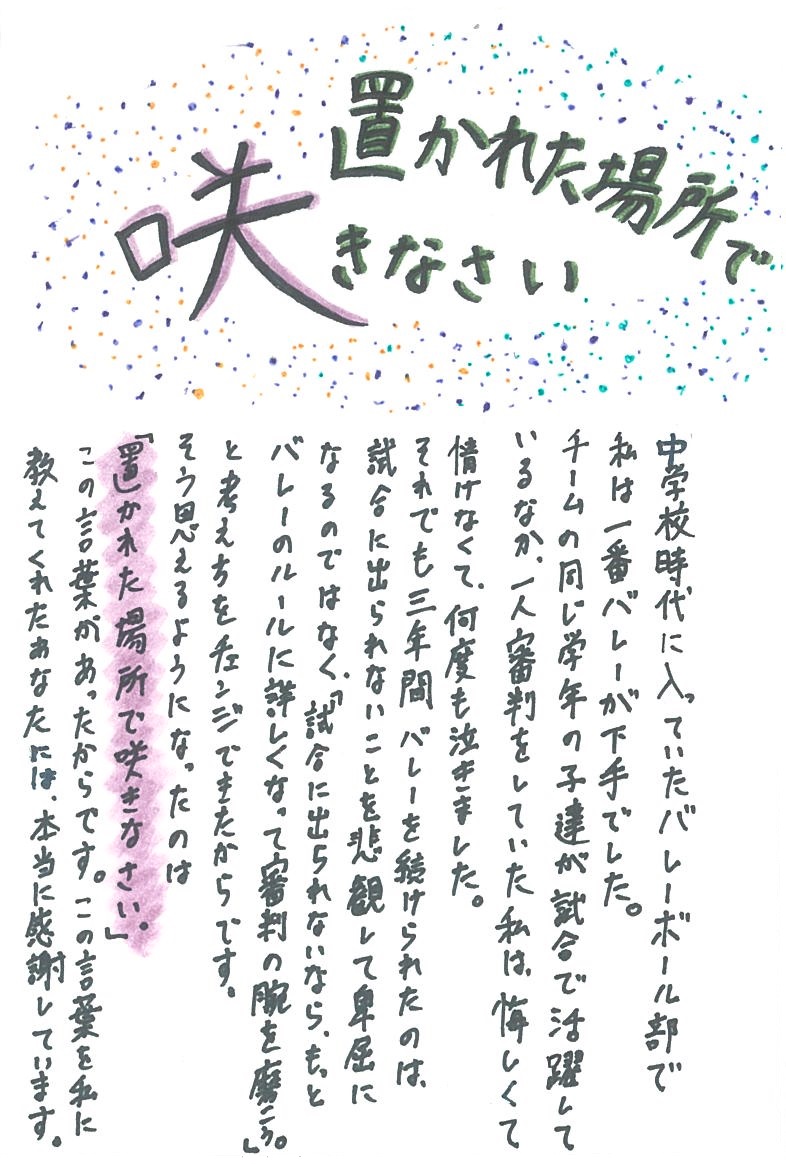 置かれた場所で
咲きなさい
中学校時代に入っていたバレーボール部で
私は一番バレーが下手でした。
チームの同じ学年の子達が試合で活躍して
いるなか、一人審判をしていた私は、悔しくて
情けなくて、何度も泣きました。
それでも三年間バレーを続けられたのは、
試合に出られないことを悲観して卑屈に
なるのではなく、「試合に出られないなら、もっと
バレーのルールに詳しくなって審判の腕を磨こう。」
と考えちをチェンジできたからです。
そう思えるようになったのは
「置かれた場所で咲きなさい。」
この言葉があったからです。この言葉を私に
教えてくれたあなたには、本当に感謝しています。